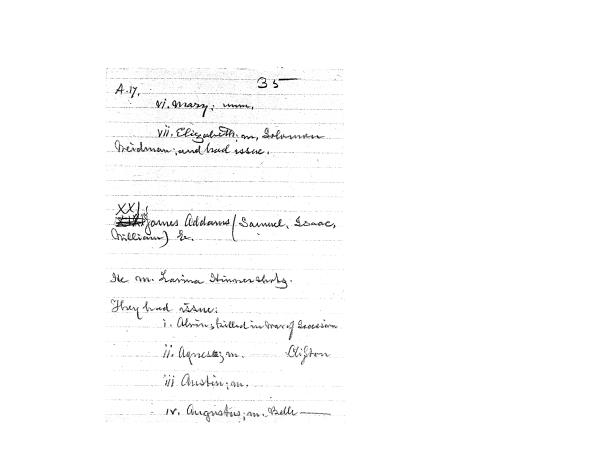 35
A.17.
vi. Mary; unm.
vii. Elizabeth; m. Solomon
Weidman; and had issue.
XXI.
James Addams (Samuel, Isaac,
William) &c.
He m. Lavina Hinnershotz.
They had issue:
i. Alvin; killed in War of Secession
ii. Agnes; m. Clifton
iii Austin; m.
iv. Augustus; m. Belle ——